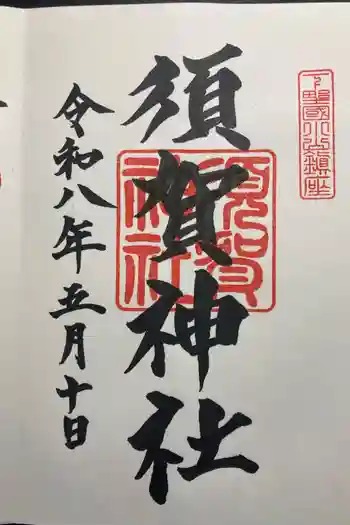 下野國小山鎮座
須賀神社
須賀神社
令和八年五月十日